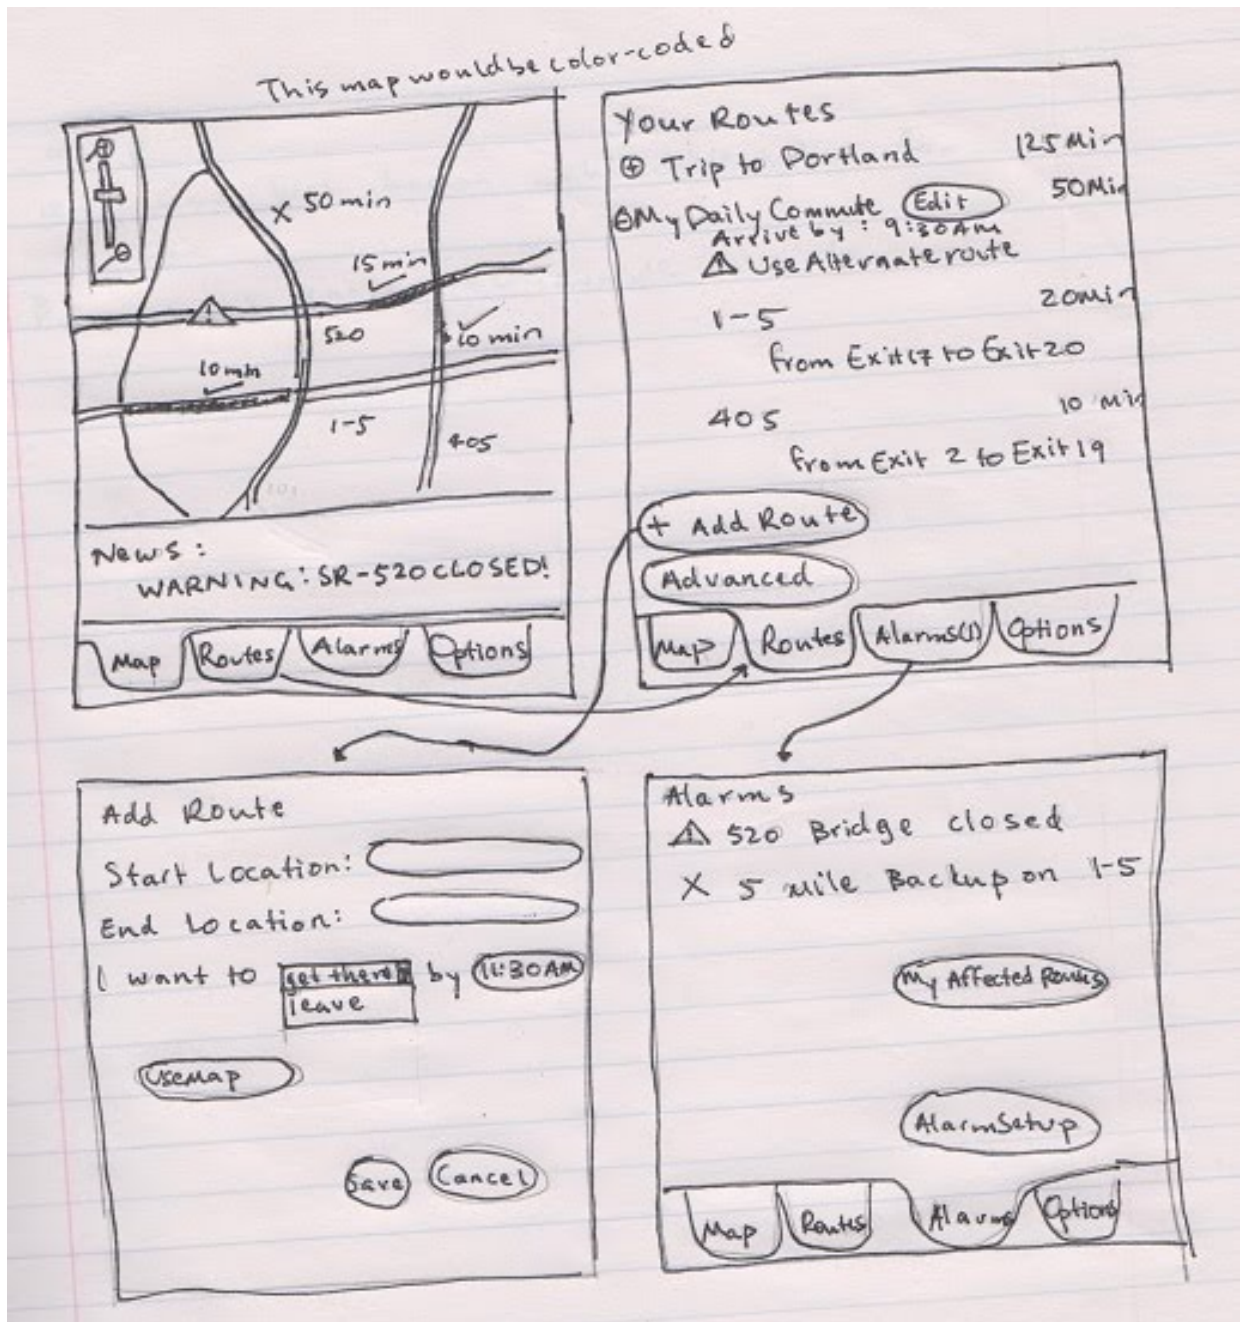 This map would be color-coded
50 min
15 min
520
10 min
10 min
1-5
405
News:
WARNING: SR-520 CLOSED!
Map Routes Alarms Options
Your Routes
Trip to Portland 125 Min
My Daily Commute Edit 50 Min
Arrive by: 9:30 AM
Use Alternate route
1-5 20 Min
from Exit 17 to Exit 20
405 10 Min
from Exit 2 to Exit 19
+ Add Route
Advanced
Map Routes Alarms(1) Options
Add Route
Start Location:
End Location:
I want to get there by 11:30 AM
leave
Use Map
Save Cancel
Alarms
520 Bridge closed
X 5 mile Backup on 1-5
My Affected Routes
Alarm Setup
Map Routes Alarms Options